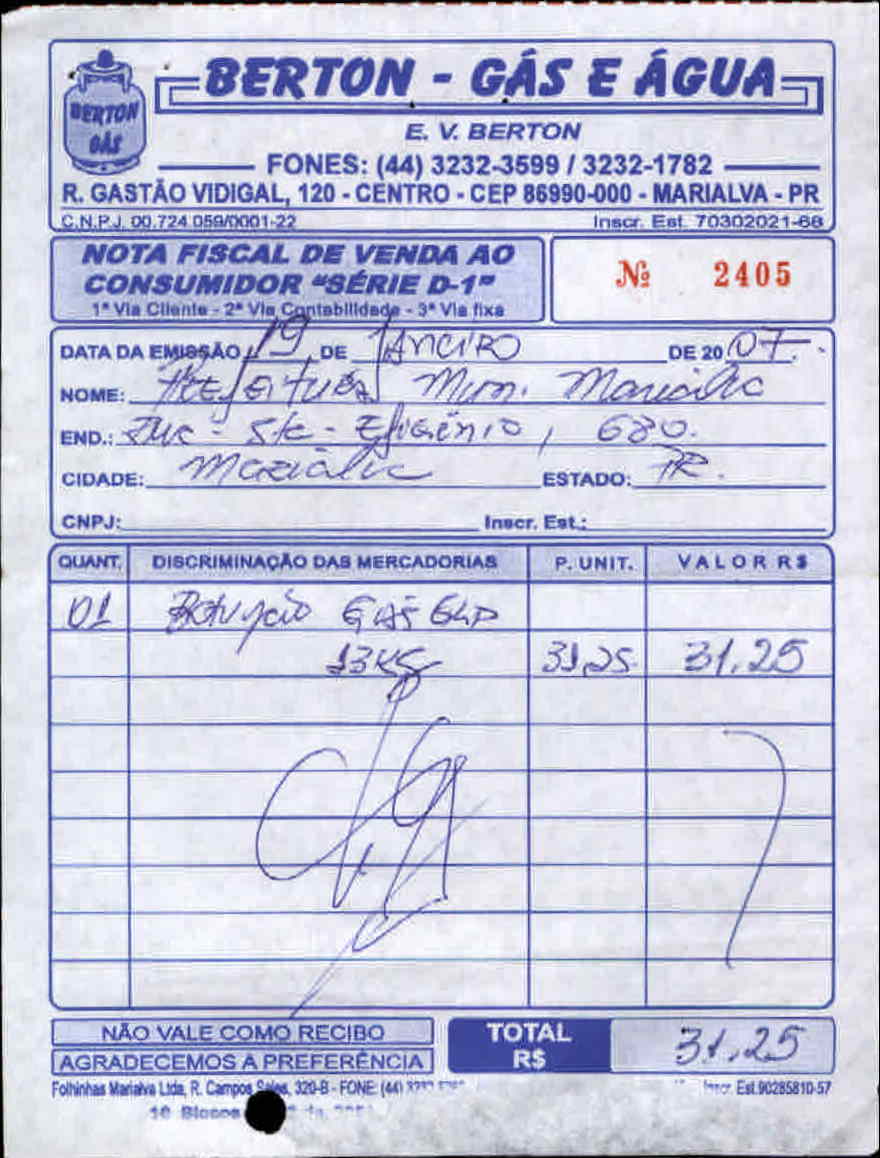 BERTON GÁS
BERTON - GÁS E ÁGUA
E. V. BERTON
FONES: (44) 3232-3599 / 3232-1782
R. GASTÃO VIDIGAL, 120 - CENTRO - CEP 86990-000 - MARIALVA - PR
C.N.P.J. 00.724.059/0001-22 Inscr. Est. 70302021-66
NOTA FISCAL DE VENDA AO
CONSUMIDOR "SÉRIE D-1"
1ª Via Cliente - 2ª Via Contabilidade - 3ª Via fixa
Nº 2405
DATA DA EMISSÃO 19 DE JANEIRO DE 2007.
NOME: Prefeitura Mun. Marialva
END.: Rua - Sta - Efigênio, 680.
CIDADE: Marialva ESTADO: PR.
CNPJ: Inscr. Est.:
QUANT. DISCRIMINAÇÃO DAS MERCADORIAS P. UNIT. VALOR R$
01 Botijão GÁS GLP
13 KG 31,25 31,25
NÃO VALE COMO RECIBO
AGRADECEMOS A PREFERÊNCIA
TOTAL R$ 31,25
Folhinhas Marialva Ltda, R. Campos Sales, 320-B - FONE: (44) Inscr. Est. 90285810-57
10 Blocos